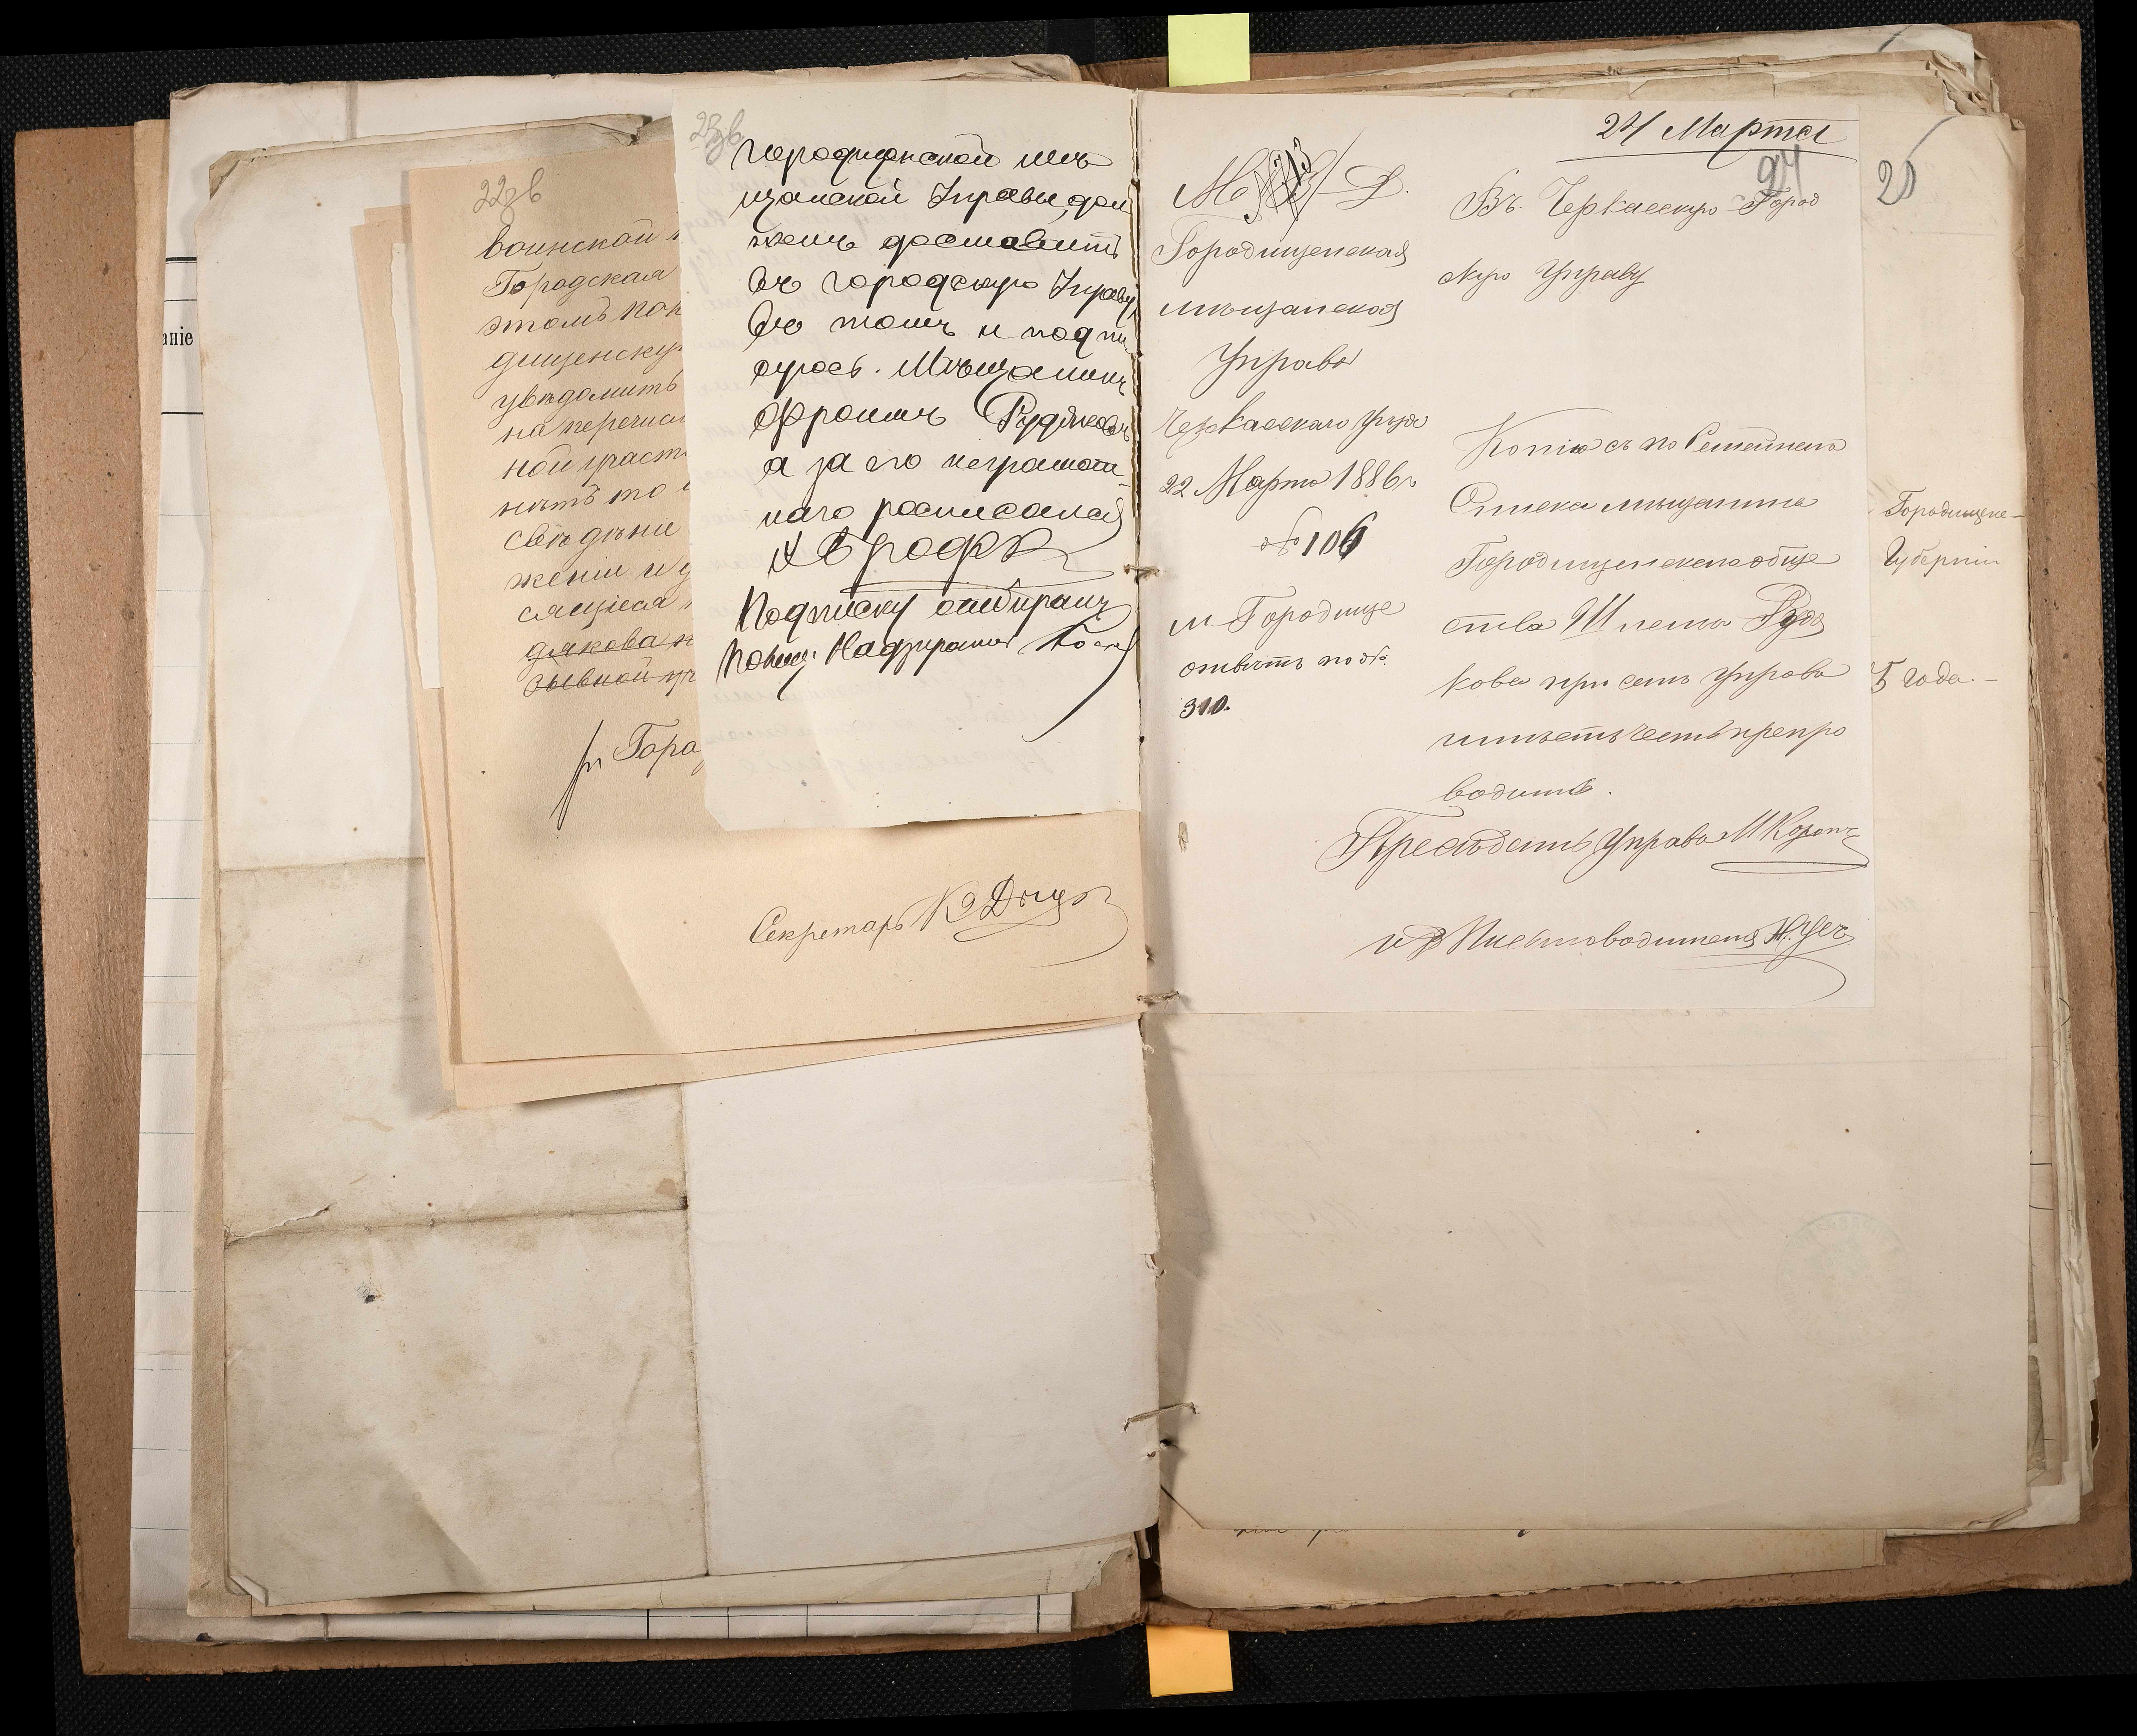 22зв
воинской
Городская
этомъ пок
дищенску
увѣдомить
на перечис
ной участ
нѣтъ то
свѣдѣнiе
женiи и у
сящiеся
дякова
зывной уч
Секретарь
аніе
23зв
мѣ
щанской Управы, дол
женъ доставить
въ городскую Управу,
въ томъ и подпи
суюсь. Мѣщанинъ
Фроимъ Рудяковъ
а за его неграмот
наго росписался
Подписку отбиралъ
Полиц. Надзиратель
24 Марта
24
М. В. Д.
Городищенская
мѣщанская
Управа
Черкасскаго уѣзда
22 Марта 1886 г.
№ 106
м. Городище
отвѣтъ на №
310.
Въ Черкасскую Город
скую Управу
Копiю съ по Семейнаго
Списка мѣщанина
Городищенскаго обще
ства Шлема Рудя
кова при семъ Управа
имѣетъ честь препро
водить.
Предсѣдатель Управы
и д Письмоводителя
25
Городищен-
Губернiи
5 года.-